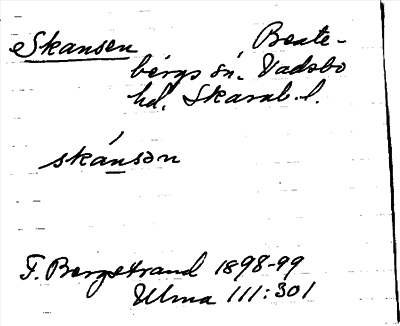 Skansen Beate-
bergs sn. Vadsbo
hd. Skarab. l.
skánsən
F. Bergstrand 1898-99
Ulma 111:301